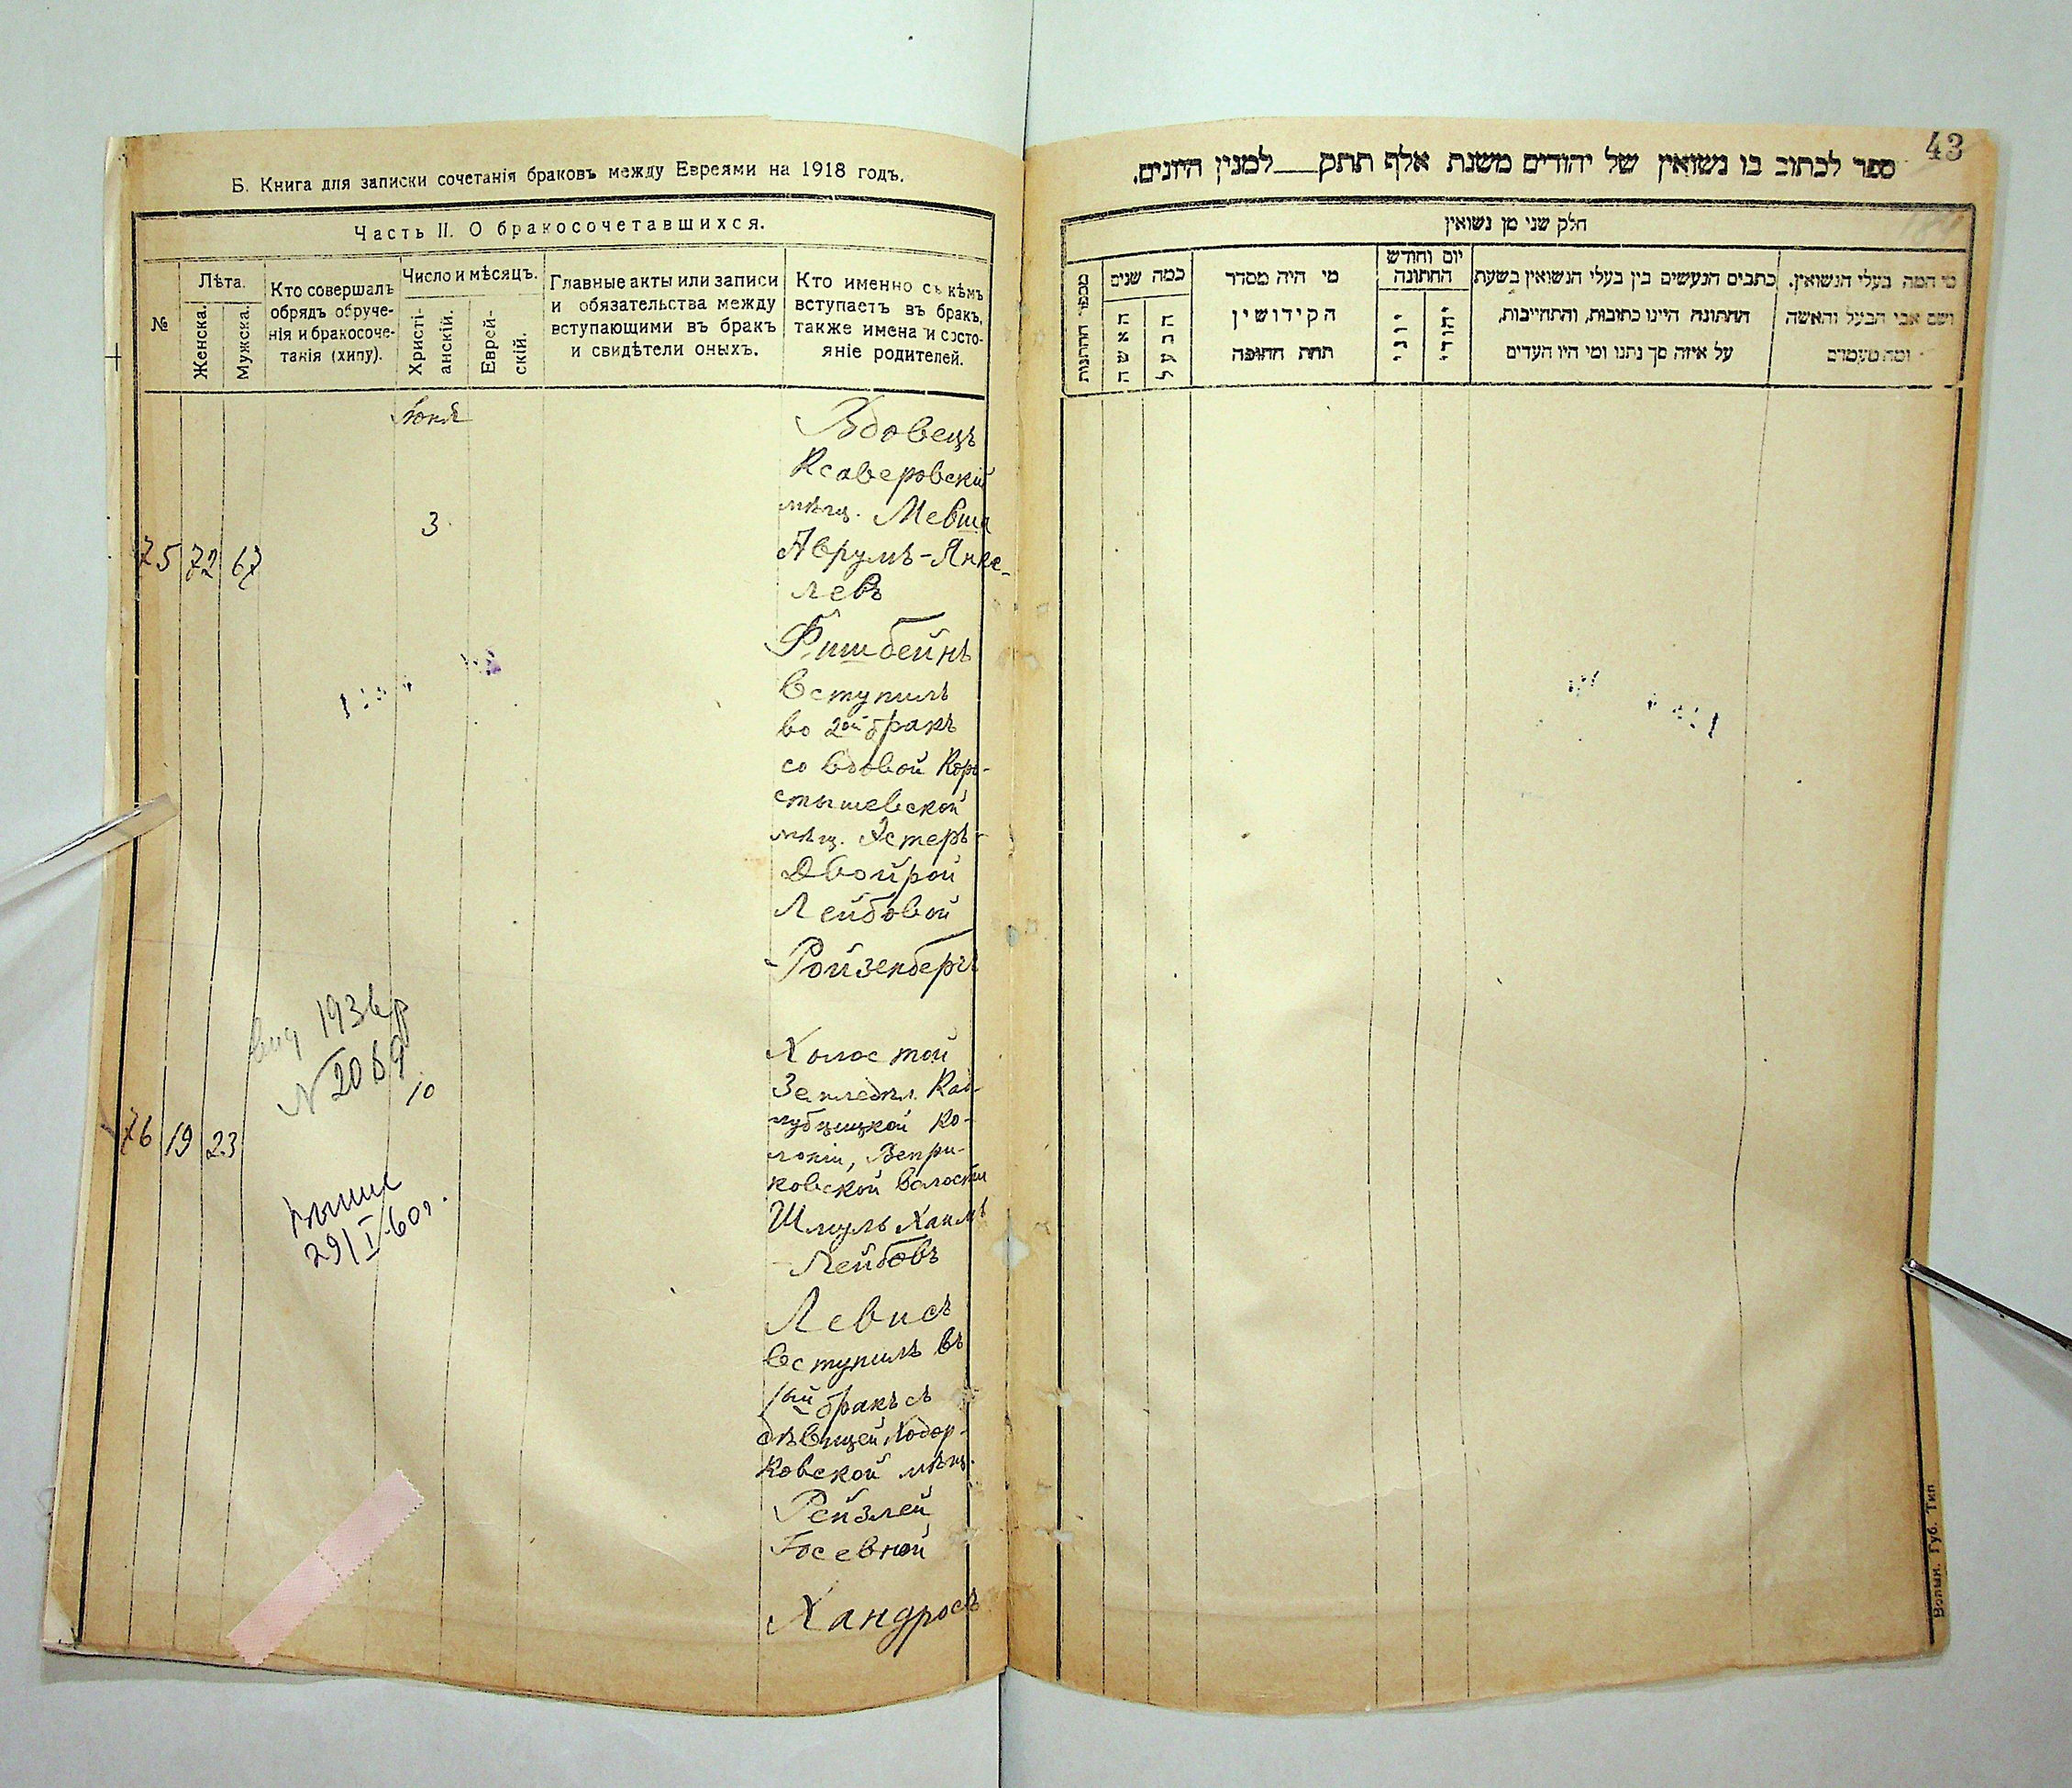 Б. Книга для записки сочетанія браковъ между Евреями на 1918 годъ.
Часть II. О бракосочетавшихся.
№
Лѣта.
Женска.
Мужска.
Кто совершалъ
обрядъ обруче-
нія и бракосоче-
танія (хипу).
Число и мѣсяцъ.
Христі-
анскій.
Еврей-
скій.
Главные акты или записи
и обязательства между
вступающими въ бракъ
и свидѣтели оныхъ.
Кто именно съ кѣмъ
вступаетъ въ бракъ,
также имена и состо-
яніе родителей.
75 72 67
3
Вдовецъ
Ксаверовскій
мѣщ. Мевша
Аврумъ-Янке-
левъ
Фишбейнъ
вступилъ
во 2ой бракъ
со вдовой Коро-
стышевской
мѣщ. Эстеръ-
Двойрой
Лейбовой
Ройзенбергъ
76 19 23
N 2069
10
29/I 60г.
Холостой
Земледѣл.
ко-
лоніи, Вепри-
ковской волости
Шмуль Хаимъ
Лейбовъ
Левисъ
вступилъ въ
1ый бракъ съ
дѣвицей Ходор-
ковской мѣщ.
Рейзлей
Іосевной
Хандросъ
43
ספר לכתוב בו נשואין של יהודים משנת אלף תתק___למנין היונים.
חלק שני מן נשואין
מספר החתונות
כמה שנים
האשה
הבעל
מי היה מסדר
הקידושין
תחת החופה
יום וחודש
החתונה
יוני
יהודי
כתבים הנעשים בין בעלי הנשואין בשעת
החתונה היינו כתובות, והתחייבות,
על איזה סך נתנו ומי היו העדים
מי המה בעלי הנשואין.
ושם אבי הבעל והאשה
ומה מעמדם
Волын. Губ. Тип